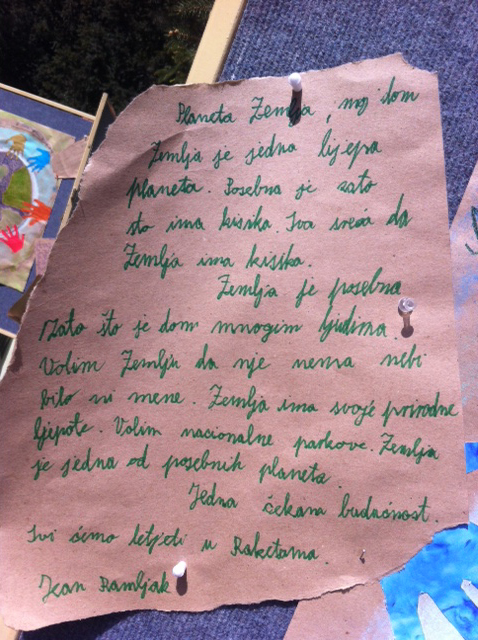 Planeta Zemlja, moj dom
Zemlja je jedna lijepa
planeta. Posebna je zato
što ima kisika. Sva sreća da
Zemlja ima kisika.
Zemlja je posebna
zato što je dom mnogim ljudima.
Volim Zemlju da nje nema nebi
bilo ni mene. Zemlja ima svoje prirodne
ljepote. Volim nacionalne parkove. Zemlja
je jedna od posebnih planeta.
Jedna čekana budućnost.
Svi ćemo letjeti u Raketama.
Jean Ramljak